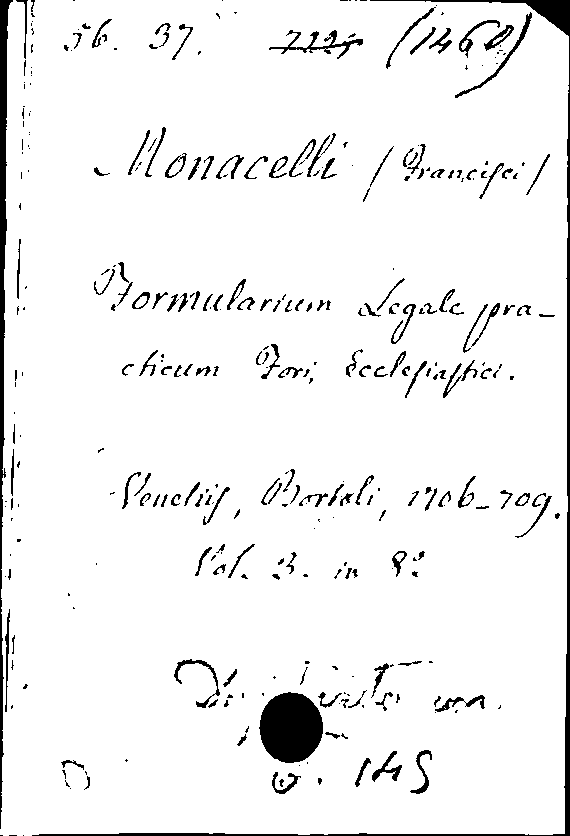 56. 37. 7725 (1460)
Monacelli / Francisci /
Formularium Legale pra-
cticum Fori, Ecclesiastici.
Venetiis, Bortoli, 1706-709.
Vol. 3. in 8º
149